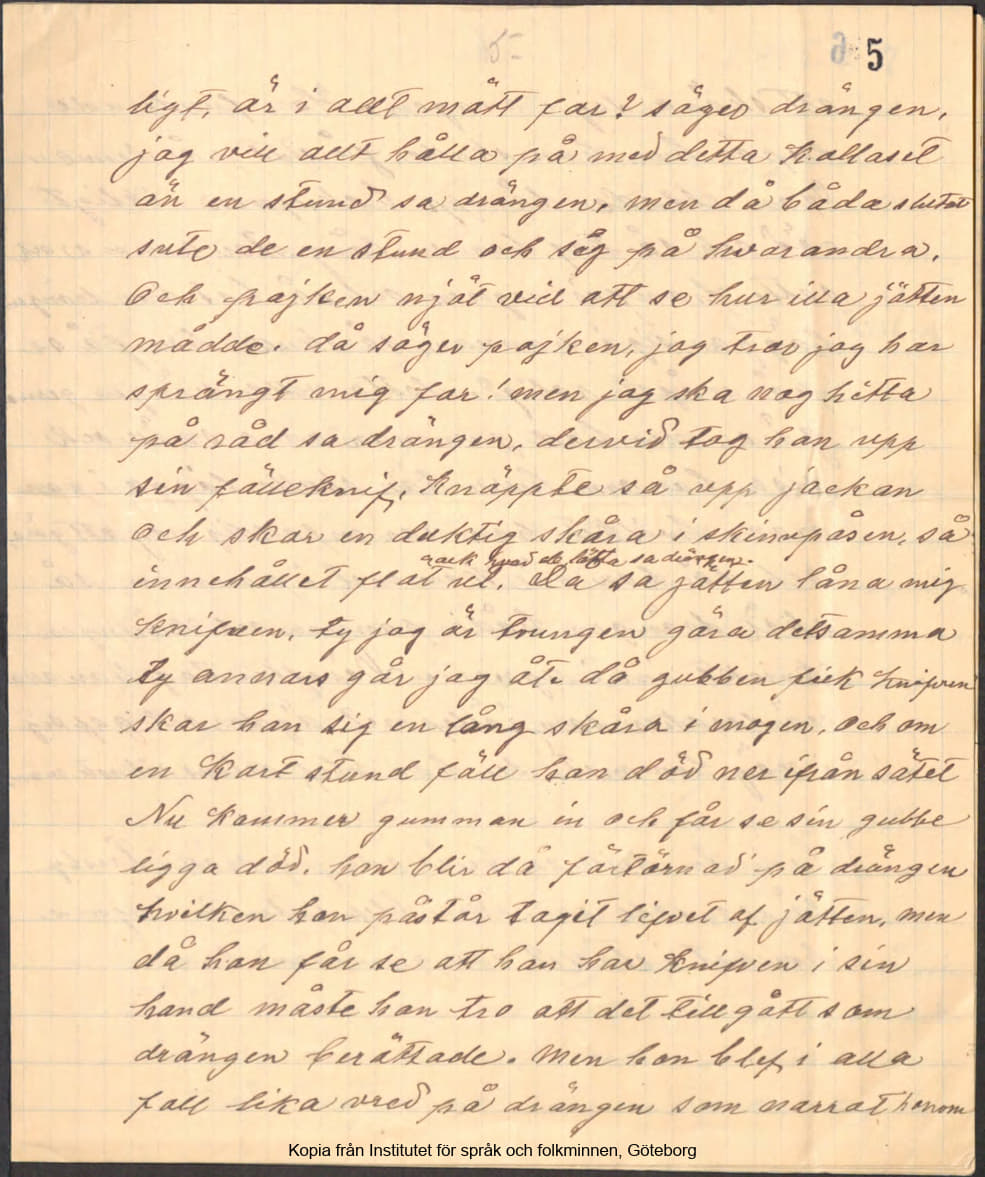 5
ligt, är i allt mätt far? säger drängen,
jag vill allt hålla på med detta kallaset
än en stund sa drängen, men då båda slutat
sute de en stund och såg på hvarandra.
Och pojken njöt vid att se hur illa jätten
mådde. då säger pojken, jag tror jag har
sprängt mig far! men jag ska nog hitta
på råd sa drängen, dervid tog han upp
sin fälleknif, knäppte så upp jackan
och skar en duktig skåra i skinnpåsen, så
ack hvad de lätta sa drängen.
innehållet flöt ut. Da sa jätten låna mig
knifven, ty jag är tvungen göra detsamma
ty annars går jag åt. då gubben fick knifven
skar han sig en lång skåra i magen, och om
en kort stund föll han död ner ifrån sätet
Nu kommer gumman in och får se sin gubbe
ligga död. hon blir då förtörnad på drängen
hvilken hon påstår tagit lifvet af jätten, men
då hon får se att han har knifven i sin
hand måste hon tro att det tillgått som
drängen berättade. Men hon blef i alla
fall lika vred på drängen som narrat honom
Kopia från Institutet för språk och folkminnen, Göteborg